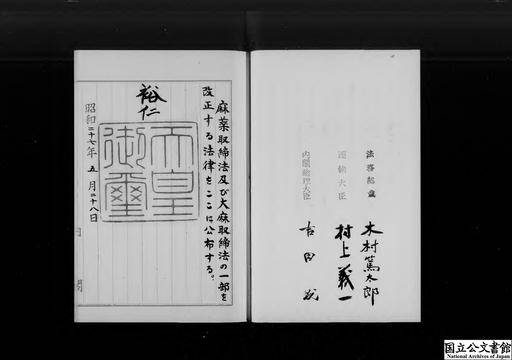 法務総裁 木村篤太郎
運輸大臣 村上義一
内閣総理大臣 吉田茂
麻薬取締法及び大麻取締法の一部を
改正する法律をここに公布する。
裕仁
天皇御璽
昭和二十七年 五月二十八日
内閣
国立公文書館
National Archives of Japan